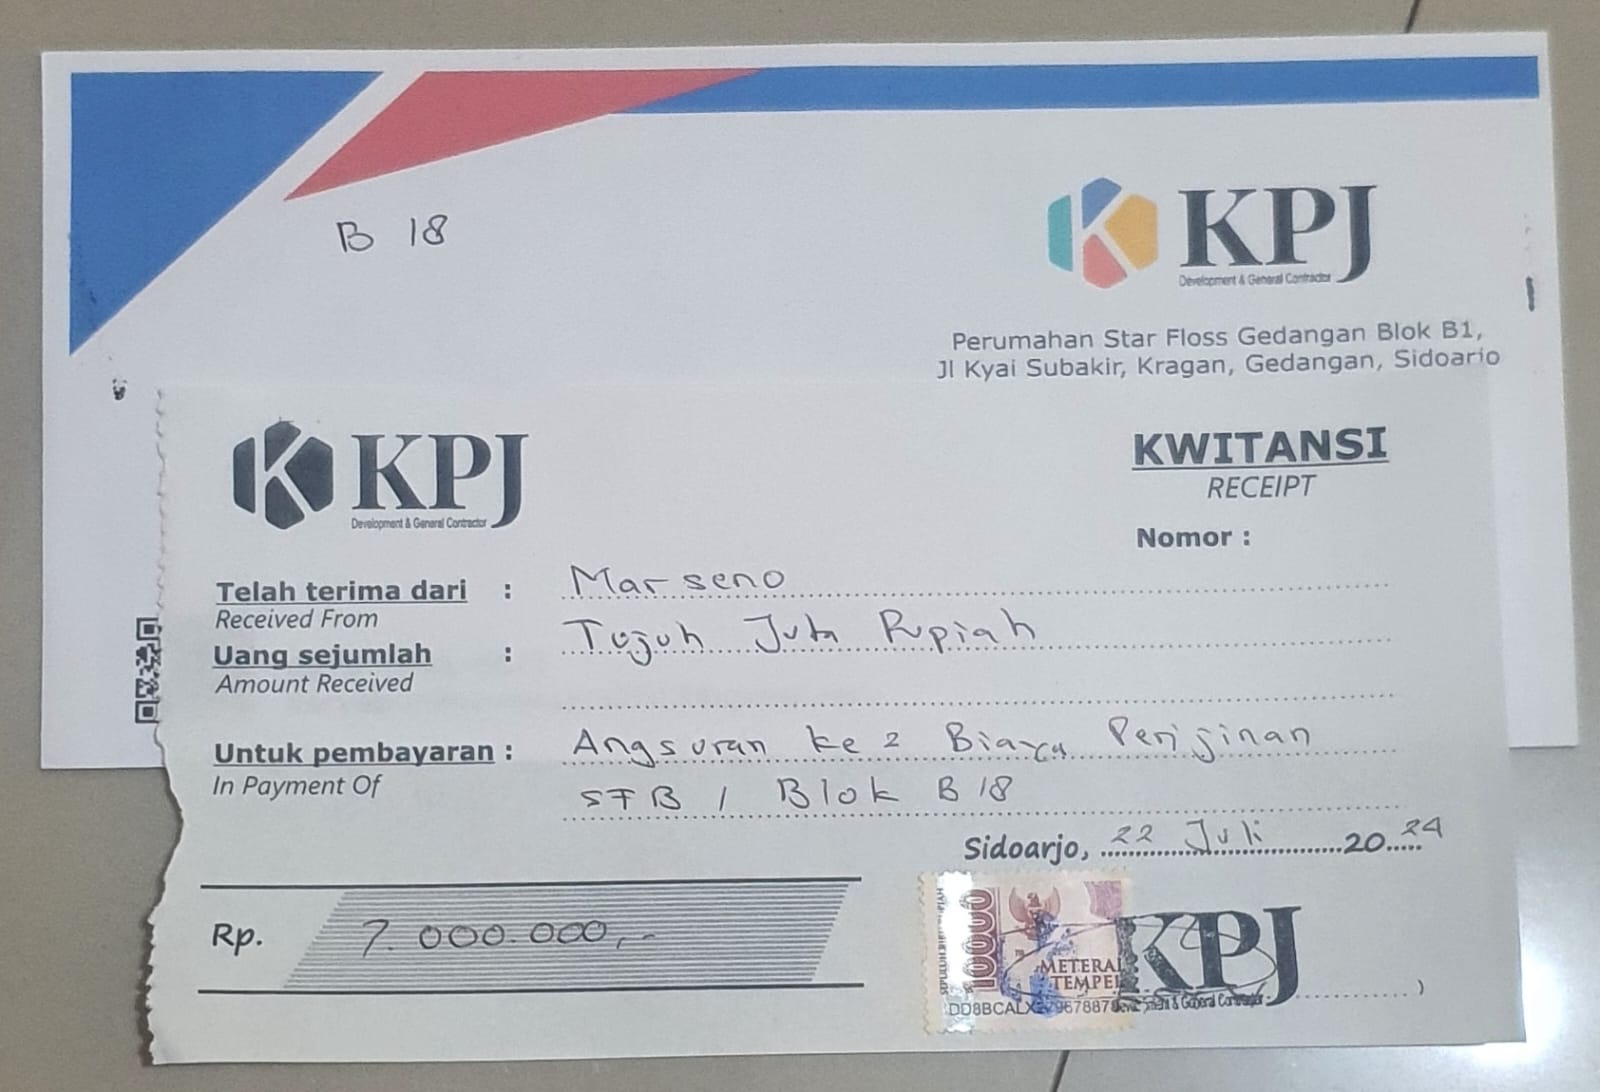 B 18
KPJ
Development & General Contractor
Perumahan Star Floss Gedangan Blok B1,
Jl Kyai Subakir, Kragan, Gedangan, Sidoario
KPJ
Development & General Contractor
KWITANSI
RECEIPT
Nomor :
Telah terima dari : Marseno
Received From
Uang sejumlah : Tujuh Juta Rupiah
Amount Received
Untuk pembayaran : Angsuran ke 2 Biaya Perijinan
In Payment Of
STB / Blok B 18
Sidoarjo, 22 Juli 2024
Rp. 7.000.000,-
10000
METERAI
TEMPEL
KPJ
& General Contractor
)